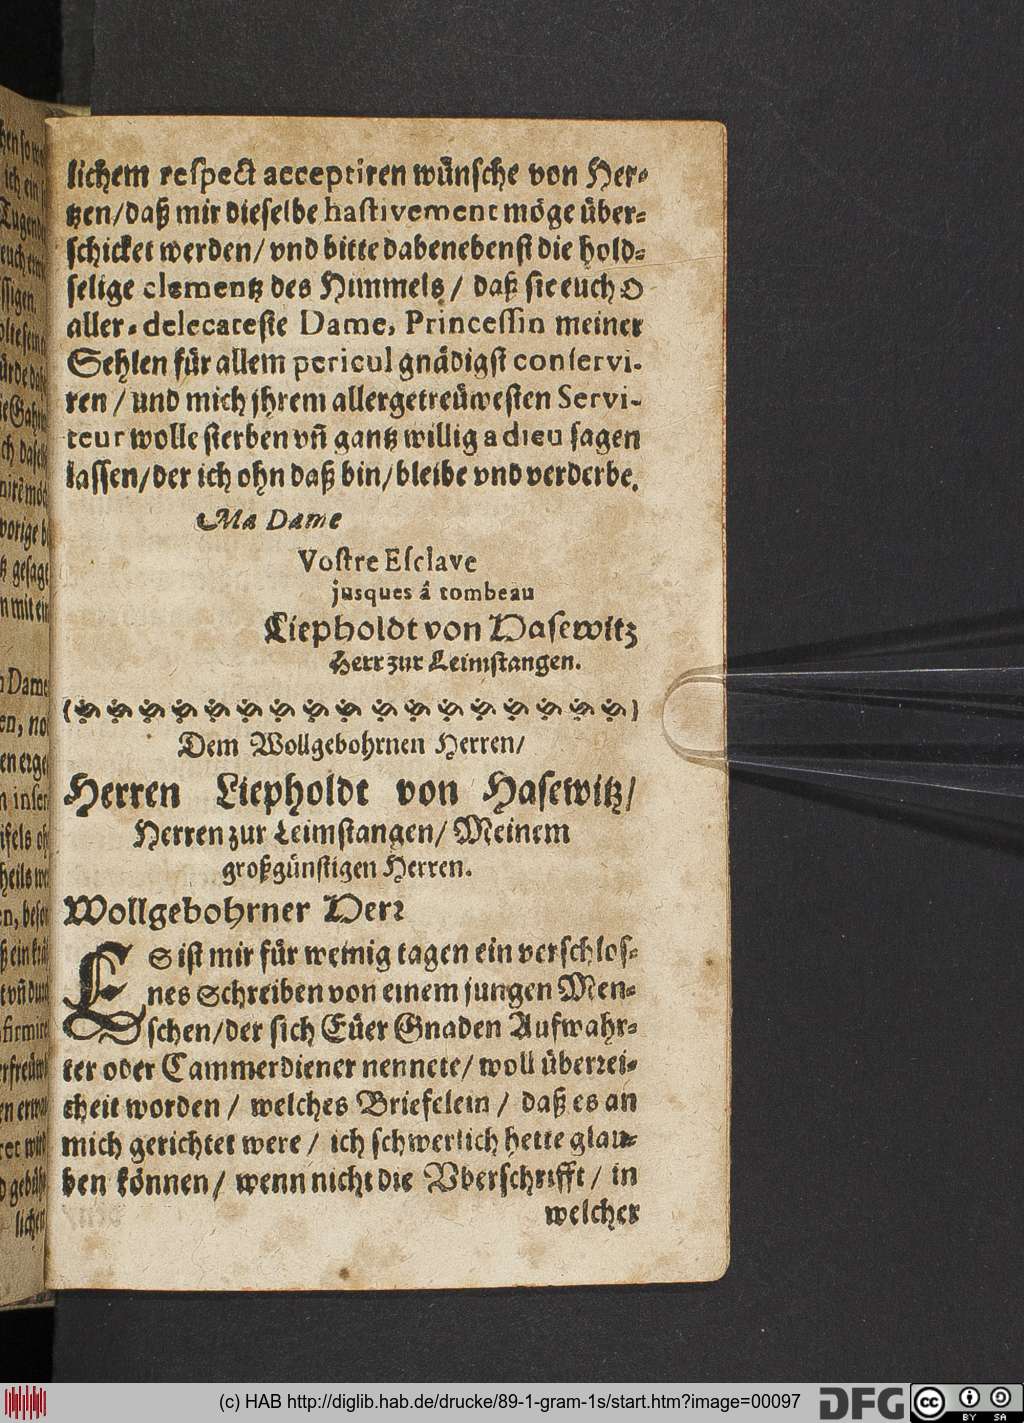 lichem respect acceptiren wünsche von Her-
tzen/daß mir dieselbe hastivement möge über-
schicket werden/ vnd bitte dabenebenst die hold-
selige clementz des Himmels / daß sie euch O
aller-delecateste Dame, Princessin meiner
Sehlen für allem pericul gnädigst conservi-
ren / und mich jhrem allergetreüwesten Servi-
teur wolle sterben vñ gantz willig adieu sagen
lassen/der ich ohn daß bin/bleibe vnd verderbe.
Ma Dame
Vostre Esclave
jusques â tombeau
Liepholdt von Hasewitz
Herr zur Leimstangen.
Dem Wollgebohrnen Herren/
Herren Liepholdt von Hasewitz/
Herren zur Leimstangen/ Meinem
großgünstigen Herren.
Wollgebohrner Herr
ES ist mir für wenig tagen ein verschlos-
nes Schreiben von einem jungen Men-
schen/der sich Eüer Gnaden Aufwahr-
ter oder Cammerdiener nennete/ woll überrei-
cheit worden / welches Briefelein / daß es an
mich gerichtet were / ich schwerlich hette glau-
ben können/ wenn nicht die Vberschrifft / in
welcher
(c) HAB http://diglib.hab.de/drucke/89-1-gram-1s/start.htm?image=00097
DFG
cc BY SA